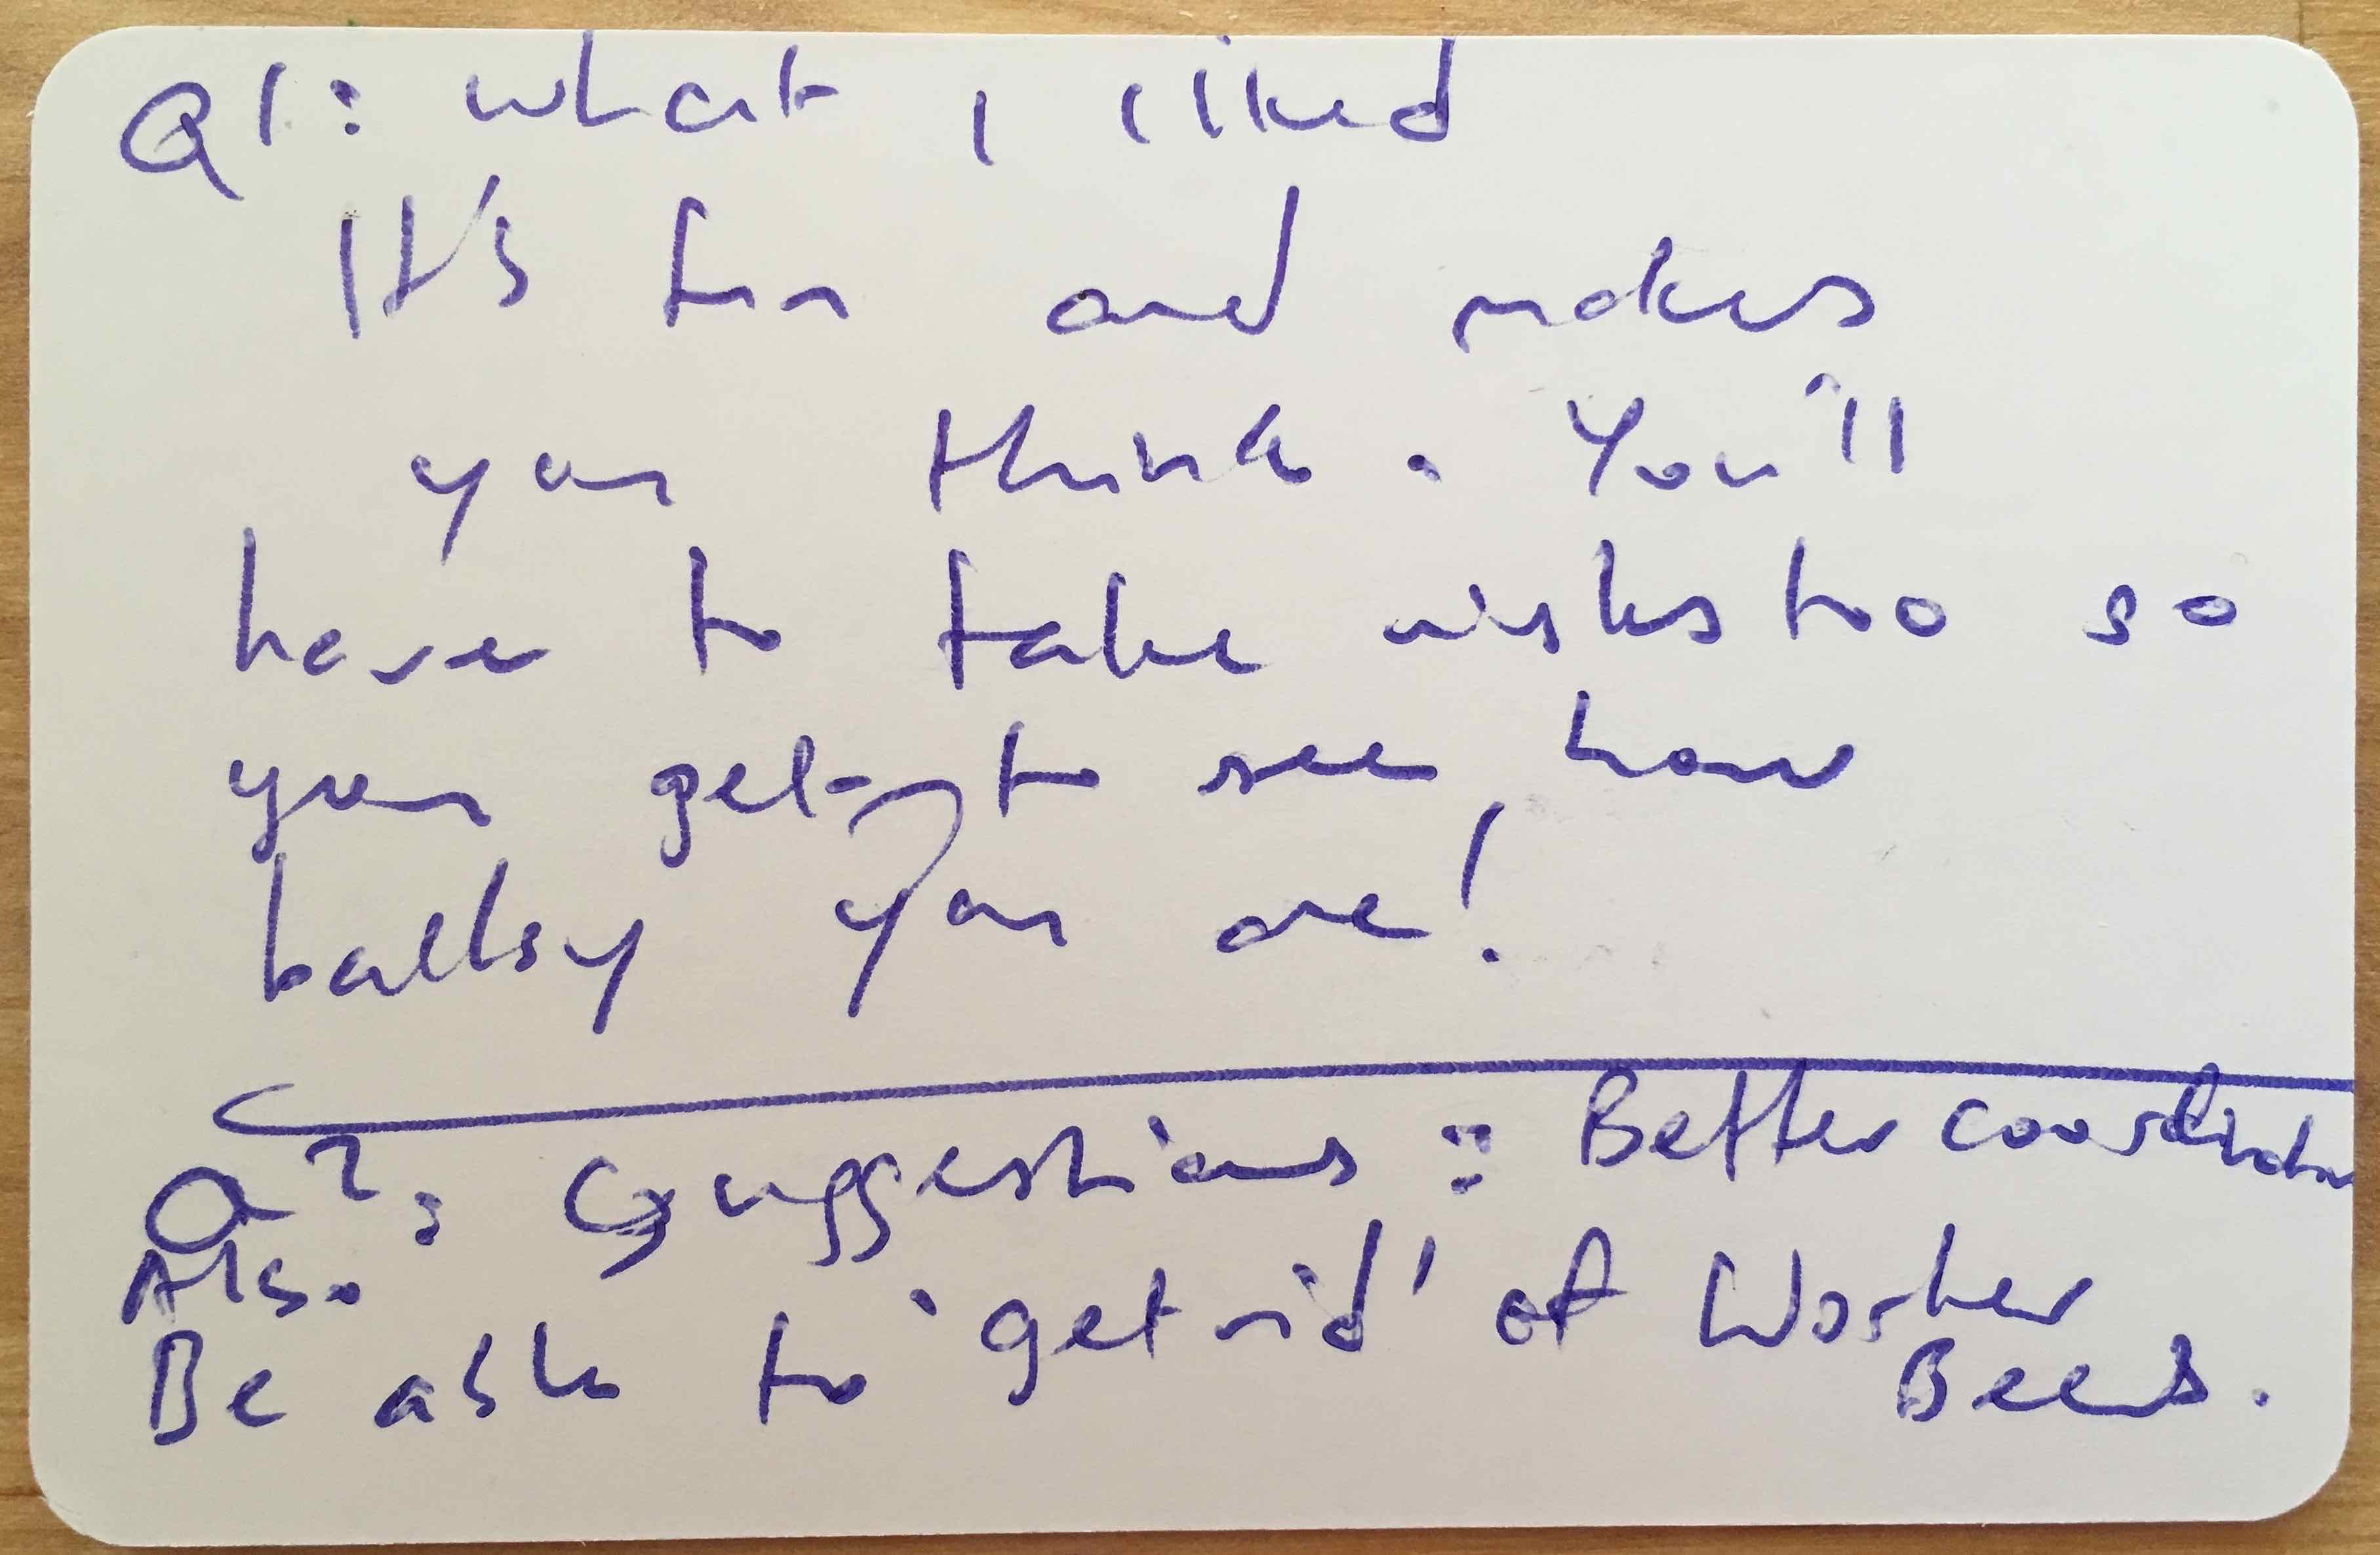 Q1: what I liked
It's fun and makes
you think. You'll
have to take risks too so
you get to see how
ballsy you are!
Q2: Suggestions: Better coordination
Also
Be able to 'get rid' of Worker
Bees.